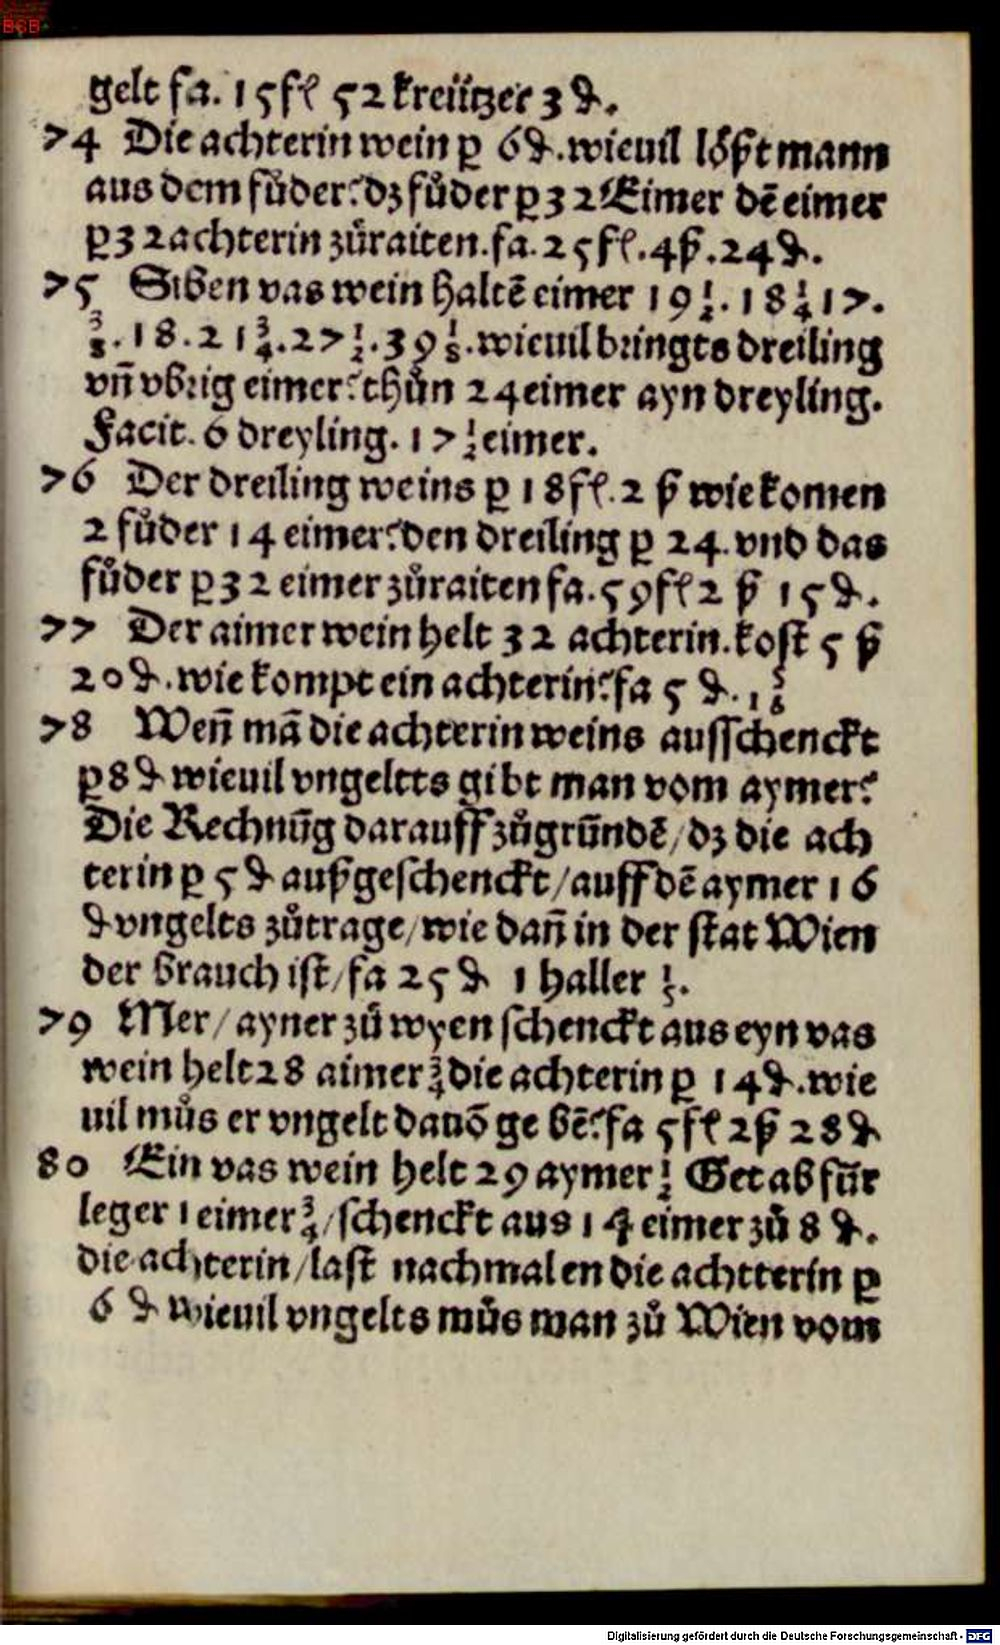 BSB
gelt fa. 15 fl 52 kreützer 3 ₰.
74 Die achterin wein p 6 ₰. wieuil löst mann
aus dem fůder? dz fůder p 32 Eimer dē eimer
p 32 achterin zůraiten. fa. 25 fl. 4 ß. 24 ₰.
75 Siben vas wein haltē eimer 19 1/2. 18 1/4 17.
3/8. 18. 21 3/4. 27 1/2. 39 1/8. wieuil bringts dreiling
vn̄ vbrig eimer? thůn 24 eimer ayn dreyling.
Facit. 6 dreyling. 17 1/2 eimer.
76 Der dreiling weins p 18 fl. 2 ß wie komen
2 fůder 14 eimer? den dreiling p 24. vnd das
fůder p 32 eimer zůraiten fa. 59 fl 2 ß 15 ₰.
77 Der aimer wein helt 32 achterin. kost 5 ß
20 ₰. wie kompt ein achterin? fa 5 ₰.
78 Wen̄ mā die achterin weins ausschenckt
p 8 ₰ wieuil vngeltts gibt man vom aymer?
Die Rechnūg darauff zůgrūndē / dz die ach
terin p 5 ₰ außgeschenckt / auff dē aymer 16
₰ vngelts zůtrage / wie dan̄ in der stat Wien
der brauch ist / fa 25 ₰ 1 haller 1/5.
79 Mer / ayner zů wyen schenckt aus eyn vas
wein helt 28 aimer 3/4 die achterin p 14 ₰. wie
uil můs er vngelt dauō ge bē? fa 5 fl 2 ß 28 ₰
80 Ein vas wein helt 29 aymer 1/2 Get ab für
leger 1 eimer 3/4 / schenckt aus 14 eimer zů 8 ₰.
die achterin / last nachmalen die achtterin p
6 ₰ wieuil vngelts můs man zů Wien vom
Digitalisierung gefördert durch die Deutsche Forschungsgemeinschaft - DFG